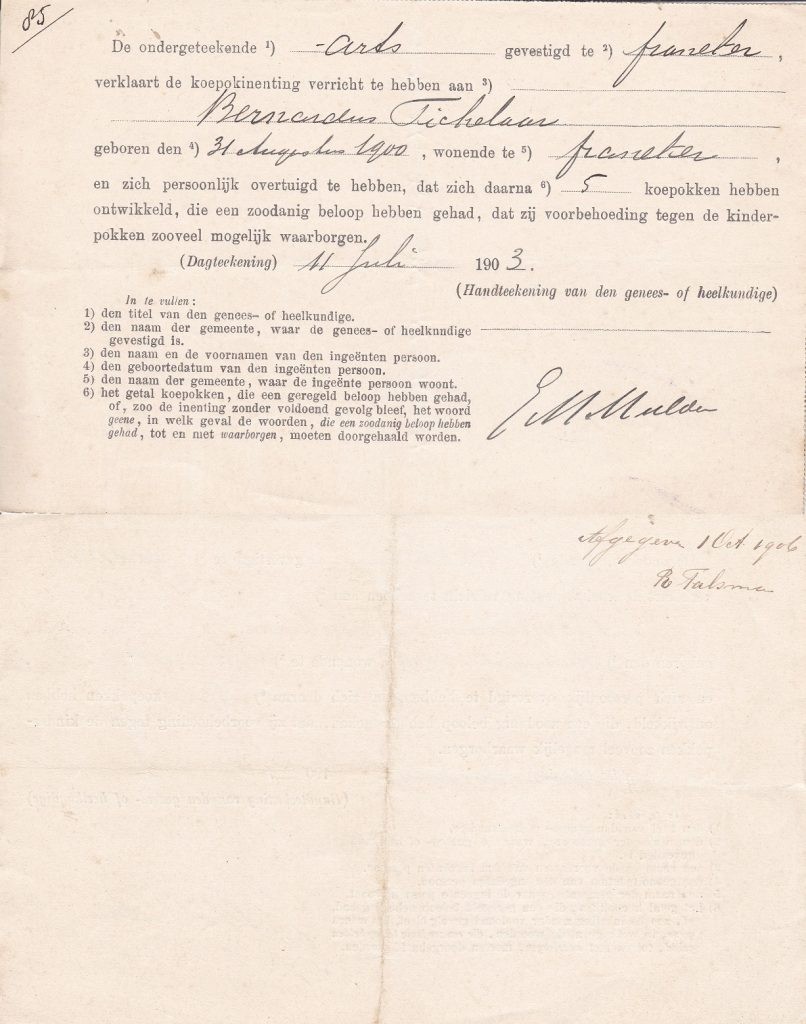 85
De ondergeteekende 1) arts gevestigd te 2) franeker,
verklaart de koepokinenting verricht te hebben aan 3)
Bernardus Tichelaar
geboren den 4) 31 Augustus 1900, wonende te 5) franeker,
en zich persoonlijk overtuigd te hebben, dat zich daarna 6) 5 koepokken hebben
ontwikkeld, die een zoodanig beloop hebben gehad, dat zij voorbehoeding tegen de kinder-
pokken zooveel mogelijk waarborgen.
(Dagteekening) 11 Juli 1903.
(Handteekening van den genees- of heelkundige)
In te vullen:
1) den titel van den genees- of heelkundige.
2) den naam der gemeente, waar de genees- of heelkundige
gevestigd is.
3) den naam en de voornamen van den ingeënten persoon.
4) den geboortedatum van den ingeënten persoon.
5) den naam der gemeente, waar de ingeënte persoon woont.
6) het getal koepokken, die een geregeld beloop hebben gehad,
of, zoo de inenting zonder voldoend gevolg bleef, het woord
geene, in welk geval de woorden, die een zoodanig beloop hebben
gehad, tot en met waarborgen, moeten doorgehaald worden.
E M Mulder
Afgegeven 1 Oct 1906
R Talsma